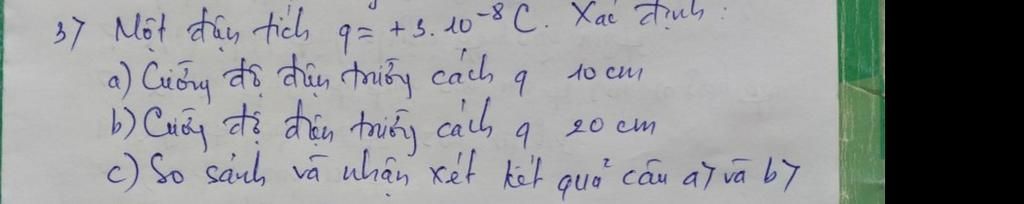 3) Một điện tích q = +3.10⁻⁸ C. Xác định:
a) Cường độ điện trường cách q 10 cm
b) Cường độ điện trường cách q 20 cm
c) So sánh và nhận xét kết quả câu a) và b)